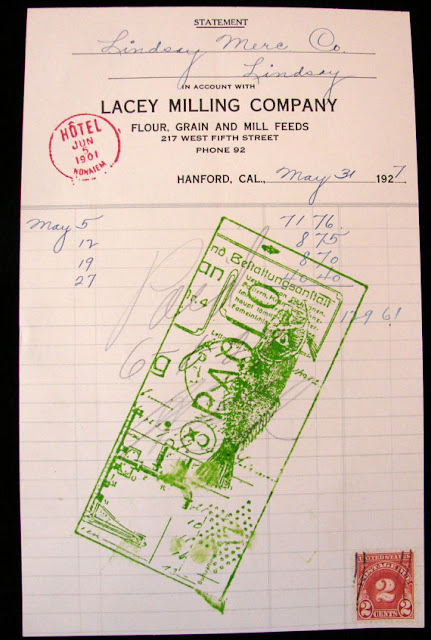 STATEMENT
Lindsay Merc Co.
Lindsay
IN ACCOUNT WITH
LACEY MILLING COMPANY
FLOUR, GRAIN AND MILL FEEDS
217 WEST FIFTH STREET
PHONE 92
HANFORD, CAL., May 31 1927
HÔTEL
JUN
5
1901
May 5 71 76
12 8 75
19 8 70
27 40 40
129 61
Paid
nd Bestattungsanstalt
an
PABLO
UNITED STATES
POSTAGE DUE
2
2 CENTS 2